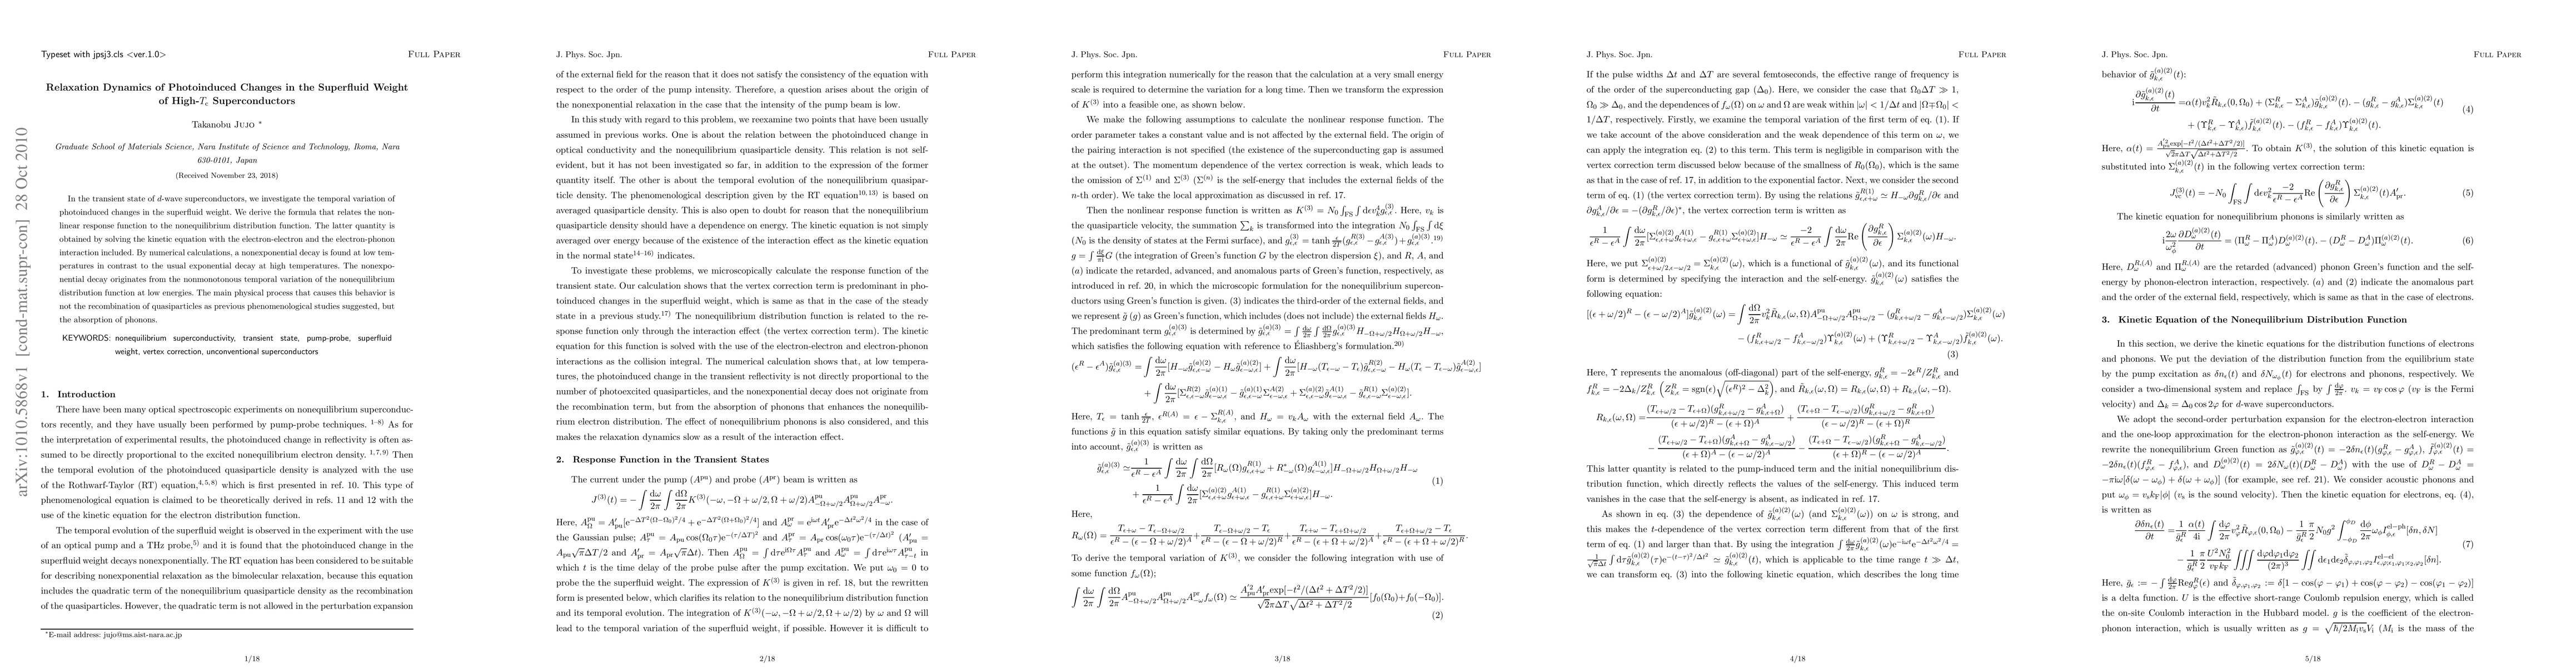 arXiv:1010.5868v1 [cond-mat.supr-con] 28 Oct 2010
Typeset with jpsj3.cls <ver.1.0> Full Paper
Relaxation Dynamics of Photoinduced Changes in the Superfluid Weight
of High-Tc Superconductors
Takanobu Jujo *
Graduate School of Materials Science, Nara Institute of Science and Technology, Ikoma, Nara
630-0101, Japan
(Received November 23, 2018)
In the transient state of d-wave superconductors, we investigate the temporal variation of
photoinduced changes in the superfluid weight. We derive the formula that relates the non-
linear response function to the nonequilibrium distribution function. The latter quantity is
obtained by solving the kinetic equation with the electron-electron and the electron-phonon
interaction included. By numerical calculations, a nonexponential decay is found at low tem-
peratures in contrast to the usual exponential decay at high temperatures. The nonexpo-
nential decay originates from the nonmonotonous temporal variation of the nonequilibrium
distribution function at low energies. The main physical process that causes this behavior is
not the recombination of quasiparticles as previous phenomenological studies suggested, but
the absorption of phonons.
KEYWORDS: nonequilibrium superconductivity, transient state, pump-probe, superfluid
weight, vertex correction, unconventional superconductors
1. Introduction
There have been many optical spectroscopic experiments on nonequilibrium superconduc-
tors recently, and they have usually been performed by pump-probe techniques. 1–8) As for
the interpretation of experimental results, the photoinduced change in reflectivity is often as-
sumed to be directly proportional to the excited nonequilibrium electron density. 1,7,9) Then
the temporal evolution of the photoinduced quasiparticle density is analyzed with the use
of the Rothwarf-Taylor (RT) equation,4,5,8) which is first presented in ref. 10. This type of
phenomenological equation is claimed to be theoretically derived in refs. 11 and 12 with the
use of the kinetic equation for the electron distribution function.
The temporal evolution of the superfluid weight is observed in the experiment with the use
of an optical pump and a THz probe,5) and it is found that the photoinduced change in the
superfluid weight decays nonexponentially. The RT equation has been considered to be suitable
for describing nonexponential relaxation as the bimolecular relaxation, because this equation
includes the quadratic term of the nonequilibrium quasiparticle density as the recombination
of the quasiparticles. However, the quadratic term is not allowed in the perturbation expansion
*E-mail address: jujo@ms.aist-nara.ac.jp
1/18
J. Phys. Soc. Jpn. Full Paper
of the external field for the reason that it does not satisfy the consistency of the equation with
respect to the order of the pump intensity. Therefore, a question arises about the origin of
the nonexponential relaxation in the case that the intensity of the pump beam is low.
In this study with regard to this problem, we reexamine two points that have been usually
assumed in previous works. One is about the relation between the photoinduced change in
optical conductivity and the nonequilibrium quasiparticle density. This relation is not self-
evident, but it has not been investigated so far, in addition to the expression of the former
quantity itself. The other is about the temporal evolution of the nonequilibrium quasipar-
ticle density. The phenomenological description given by the RT equation10,13) is based on
averaged quasiparticle density. This is also open to doubt for reason that the nonequilibrium
quasiparticle density should have a dependence on energy. The kinetic equation is not simply
averaged over energy because of the existence of the interaction effect as the kinetic equation
in the normal state14–16) indicates.
To investigate these problems, we microscopically calculate the response function of the
transient state. Our calculation shows that the vertex correction term is predominant in pho-
toinduced changes in the superfluid weight, which is same as that in the case of the steady
state in a previous study.17) The nonequilibrium distribution function is related to the re-
sponse function only through the interaction effect (the vertex correction term). The kinetic
equation for this function is solved with the use of the electron-electron and electron-phonon
interactions as the collision integral. The numerical calculation shows that, at low tempera-
tures, the photoinduced change in the transient reflectivity is not directly proportional to the
number of photoexcited quasiparticles, and the nonexponential decay does not originate from
the recombination term, but from the absorption of phonons that enhances the nonequilib-
rium electron distribution. The effect of nonequilibrium phonons is also considered, and this
makes the relaxation dynamics slow as a result of the interaction effect.
2. Response Function in the Transient States
The current under the pump (A^pu) and probe (A^pr) beams is written as
J^(3)(t) = −∫dω/2π ∫dΩ/2π K^(3)(−ω, −Ω + ω/2, Ω + ω/2)A^pu_{−Ω+ω/2}A^pu_{Ω+ω/2}A^pr_{−ω}.
Here, A^pu_Ω = A′_pu[e^{−ΔT²(Ω−Ω0)²/4} + e^{−ΔT²(Ω+Ω0)²/4}] and A^pr_ω = e^{iωt}A′_pr e^{−Δt²ω²/4} in the case of
the Gaussian pulse; A^pu_τ = A_pu cos(Ω0τ)e^{−(τ/ΔT)²} and A^pr_τ = A_pr cos(ω0τ)e^{−(τ/Δt)²} (A′_pu =
A_pu√πΔT/2 and A′_pr = A_pr√πΔt). Then A^pu_Ω = ∫dτe^{iΩτ}A^pu_τ and A^pu_ω = ∫dτe^{iωτ}A^pu_{τ−t} in
which t is the time delay of the probe pulse after the pump excitation. We put ω0 = 0 to
probe the the superfluid weight. The expression of K^(3) is given in ref. 18, but the rewritten
form is presented below, which clarifies its relation to the nonequilibrium distribution function
and its temporal evolution. The integration of K^(3)(−ω, −Ω + ω/2, Ω + ω/2) by ω and Ω will
lead to the temporal variation of the superfluid weight, if possible. However it is difficult to
2/18
J. Phys. Soc. Jpn. Full Paper
perform this integration numerically for the reason that the calculation at a very small energy
scale is required to determine the variation for a long time. Then we transform the expression
of K^(3) into a feasible one, as shown below.
We make the following assumptions to calculate the nonlinear response function. The
order parameter takes a constant value and is not affected by the external field. The origin of
the pairing interaction is not specified (the existence of the superconducting gap is assumed
at the outset). The momentum dependence of the vertex correction is weak, which leads to
the omission of Σ^(1) and Σ^(3) (Σ^(n) is the self-energy that includes the external fields of the
n-th order). We take the local approximation as discussed in ref. 17.
Then the nonlinear response function is written as K^(3) = N0∫_FS∫dεv_k^4 g^(3)_{ε,ε}. Here, v_k is
the quasiparticle velocity, the summation Σ_k is transformed into the integration N0∫_FS∫dξ
(N0 is the density of states at the Fermi surface), and g^(3)_{ε,ε} = tanh ε/2T (g^{R(3)}_{ε,ε} − g^{A(3)}_{ε,ε}) + g^{(a)(3)}_{ε,ε}.19)
g = ∫dξ/πi G (the integration of Green's function G by the electron dispersion ξ), and R, A, and
(a) indicate the retarded, advanced, and anomalous parts of Green's function, respectively, as
introduced in ref. 20, in which the microscopic formulation for the nonequilibrium supercon-
ductors using Green's function is given. (3) indicates the third-order of the external fields, and
we represent g̃ (g) as Green's function, which includes (does not include) the external fields H_ω.
The predominant term g^{(a)(3)}_{ε,ε} is determined by g̃^{(a)(3)}_{ε,ε} = ∫dω/2π∫dΩ/2π g^{(a)(3)}_{ε,ε}H_{−Ω+ω/2}H_{Ω+ω/2}H_{−ω},
which satisfies the following equation with reference to Éliashberg's formulation.20)
(ε^R − ε^A)g̃^{(a)(3)}_{ε,ε} = ∫dω/2π [H_{−ω}g̃^{(a)(2)}_{ε,ε−ω} − H_ωg̃^{(a)(2)}_{ε−ω,ε}] + ∫dω/2π [H_{−ω}(T_{ε−ω} − T_ε)g̃^{R(2)}_{ε,ε−ω} − H_ω(T_ε − T_{ε−ω})g̃^{A(2)}_{ε−ω,ε}]
+ ∫dω/2π [Σ^{R(2)}_{ε,ε−ω}g̃^{(a)(1)}_{ε−ω,ε} − g̃^{(a)(1)}_{ε,ε−ω}Σ^{A(2)}_{ε−ω,ε} + Σ^{(a)(2)}_{ε,ε−ω}g̃^{A(1)}_{ε−ω,ε} − g̃^{R(1)}_{ε,ε−ω}Σ^{(a)(2)}_{ε−ω,ε}].
Here, T_ε = tanh ε/2T, ε^{R(A)} = ε − Σ^{R(A)}_{k,ε}, and H_ω = v_kA_ω with the external field A_ω. The
functions g̃ in this equation satisfy similar equations. By taking only the predominant terms
into account, g̃^{(a)(3)}_{ε,ε} is written as
g̃^{(a)(3)}_{ε,ε} ≃ 1/(ε^R − ε^A) ∫dω/2π ∫dΩ/2π [R_ω(Ω)g^{R(1)}_{ε,ε+ω} + R*_{−ω}(Ω)g^{A(1)}_{ε+ω,ε}]H_{−Ω+ω/2}H_{Ω+ω/2}H_{−ω}
+ 1/(ε^R − ε^A) ∫dω/2π [Σ^{(a)(2)}_{ε,ε+ω}g^{A(1)}_{ε+ω,ε} − g^{R(1)}_{ε,ε+ω}Σ^{(a)(2)}_{ε+ω,ε}]H_{−ω}. (1)
Here,
R_ω(Ω) = (T_{ε+ω} − T_{ε−Ω+ω/2})/(ε^R − (ε − Ω + ω/2)^A) + (T_{ε−Ω+ω/2} − T_ε)/(ε^R − (ε − Ω + ω/2)^R) + (T_{ε+ω} − T_{ε+Ω+ω/2})/(ε^R − (ε + Ω + ω/2)^A) + (T_{ε+Ω+ω/2} − T_ε)/(ε^R − (ε + Ω + ω/2)^R).
To derive the temporal variation of K^(3), we consider the following integration with use of
some function f_ω(Ω);
∫dω/2π ∫dΩ/2π A^pu_{−Ω+ω/2}A^pu_{Ω+ω/2}A^pr_{−ω}f_ω(Ω) ≃ A′²_pu A′_pr exp[−t²/(Δt² + ΔT²/2)]/(√2πΔT√(Δt² + ΔT²/2)) [f_0(Ω0)+f_0(−Ω0)].
(2)
3/18
J. Phys. Soc. Jpn. Full Paper
If the pulse widths Δt and ΔT are several femtoseconds, the effective range of frequency is
of the order of the superconducting gap (Δ0). Here, we consider the case that Ω0ΔT ≫ 1,
Ω0 ≫ Δ0, and the dependences of f_ω(Ω) on ω and Ω are weak within |ω| < 1/Δt and |Ω∓Ω0| <
1/ΔT, respectively. Firstly, we examine the temporal variation of the first term of eq. (1). If
we take account of the above consideration and the weak dependence of this term on ω, we
can apply the integration eq. (2) to this term. This term is negligible in comparison with the
vertex correction term discussed below because of the smallness of R_0(Ω0), which is the same
as that in the case of ref. 17, in addition to the exponential factor. Next, we consider the second
term of eq. (1) (the vertex correction term). By using the relations g̃^{R(1)}_{ε,ε+ω} ≃ H_{−ω}∂g^R_{k,ε}/∂ε and
∂g^A_{k,ε}/∂ε = −(∂g^R_{k,ε}/∂ε)*, the vertex correction term is written as
1/(ε^R − ε^A) ∫dω/2π [Σ^{(a)(2)}_{ε,ε+ω}g^{A(1)}_{ε+ω,ε} − g^{R(1)}_{ε,ε+ω}Σ^{(a)(2)}_{ε+ω,ε}]H_{−ω} ≃ −2/(ε^R − ε^A) ∫dω/2π Re(∂g^R_{k,ε}/∂ε) Σ^{(a)(2)}_{k,ε}(ω)H_{−ω}.
Here, we put Σ^{(a)(2)}_{ε+ω/2,ε−ω/2} = Σ^{(a)(2)}_{k,ε}(ω), which is a functional of g̃^{(a)(2)}_{k,ε}(ω), and its functional
form is determined by specifying the interaction and the self-energy. g̃^{(a)(2)}_{k,ε}(ω) satisfies the
following equation:
[(ε + ω/2)^R − (ε − ω/2)^A]g̃^{(a)(2)}_{k,ε}(ω) = ∫dΩ/2π v_k²R̃_{k,ε}(ω, Ω)A^pu_{−Ω+ω/2}A^pu_{Ω+ω/2} − (g^R_{k,ε+ω/2} − g^A_{k,ε−ω/2})Σ^{(a)(2)}_{k,ε}(ω)
− (f^R_{k,ε+ω/2} − f^A_{k,ε−ω/2})Υ^{(a)(2)}_{k,ε}(ω) + (Υ^R_{k,ε+ω/2} − Υ^A_{k,ε−ω/2})f̃^{(a)(2)}_{k,ε}(ω).
(3)
Here, Υ represents the anomalous (off-diagonal) part of the self-energy, g^R_{k,ε} = −2ε^R/Z^R_{k,ε}, and
f^R_{k,ε} = −2Δ_k/Z^R_{k,ε} (Z^R_{k,ε} = sgn(ε)√((ε^R)² − Δ_k²)), and R̃_{k,ε}(ω, Ω) = R_{k,ε}(ω, Ω) + R_{k,ε}(ω, −Ω).
R_{k,ε}(ω, Ω) = (T_{ε+ω/2} − T_{ε+Ω})(g^R_{k,ε+ω/2} − g^A_{k,ε+Ω})/((ε + ω/2)^R − (ε + Ω)^A) + (T_{ε+Ω} − T_{ε−ω/2})(g^R_{k,ε+ω/2} − g^R_{k,ε+Ω})/((ε − ω/2)^R − (ε + Ω)^R)
− (T_{ε+ω/2} − T_{ε+Ω})(g^A_{k,ε+Ω} − g^A_{k,ε−ω/2})/((ε + Ω)^A − (ε − ω/2)^A) − (T_{ε+Ω} − T_{ε−ω/2})(g^R_{k,ε+Ω} − g^A_{k,ε−ω/2})/((ε + Ω)^R − (ε − ω/2)^R).
This latter quantity is related to the pump-induced term and the initial nonequilibrium dis-
tribution function, which directly reflects the values of the self-energy. This induced term
vanishes in the case that the self-energy is absent, as indicated in ref. 17.
As shown in eq. (3) the dependence of g̃^{(a)(2)}_{k,ε}(ω) (and Σ^{(a)(2)}_{k,ε}(ω)) on ω is strong, and
this makes the t-dependence of the vertex correction term different from that of the first
term of eq. (1) and larger than that. By using the integration ∫dω/2π g̃^{(a)(2)}_{k,ε}(ω)e^{−iωt}e^{−Δt²ω²/4} =
1/(√πΔt) ∫dτg̃^{(a)(2)}_{k,ε}(τ)e^{−(t−τ)²/Δt²} ≃ g̃^{(a)(2)}_{k,ε}(t), which is applicable to the time range t ≫ Δt,
we can transform eq. (3) into the following kinetic equation, which describes the long time
4/18
J. Phys. Soc. Jpn. Full Paper
behavior of g̃^{(a)(2)}_{k,ε}(t):
i∂g̃^{(a)(2)}_{k,ε}(t)/∂t = α(t)v_k²R̃_{k,ε}(0, Ω0) + (Σ^R_{k,ε} − Σ^A_{k,ε})g̃^{(a)(2)}_{k,ε}(t). − (g^R_{k,ε} − g^A_{k,ε})Σ^{(a)(2)}_{k,ε}(t)
+ (Υ^R_{k,ε} − Υ^A_{k,ε})f̃^{(a)(2)}_{k,ε}(t). − (f^R_{k,ε} − f^A_{k,ε})Υ^{(a)(2)}_{k,ε}(t). (4)
Here, α(t) = A′²_pu exp[−t²/(Δt²+ΔT²/2)]/(√2πΔT√(Δt²+ΔT²/2)). To obtain K^(3), the solution of this kinetic equation is
substituted into Σ^{(a)(2)}_{k,ε}(t) in the following vertex correction term:
J^(3)_vc(t) = −N0 ∫_FS ∫dεv_k² −2/(ε^R − ε^A) Re(∂g^R_{k,ε}/∂ε) Σ^{(a)(2)}_{k,ε}(t)A′_pr. (5)
The kinetic equation for nonequilibrium phonons is similarly written as
i 2ω/ω_φ² ∂D^{(a)(2)}_ω(t)/∂t = (Π^R_ω − Π^A_ω)D^{(a)(2)}_ω(t). − (D^R_ω − D^A_ω)Π^{(a)(2)}_ω(t). (6)
Here, D^{R,(A)}_ω and Π^{R,(A)}_ω are the retarded (advanced) phonon Green's function and the self-
energy by phonon-electron interaction, respectively. (a) and (2) indicate the anomalous part
and the order of the external field, respectively, which is same as that in the case of electrons.
3. Kinetic Equation of the Nonequilibrium Distribution Function
In this section, we derive the kinetic equations for the distribution functions of electrons
and phonons. We put the deviation of the distribution function from the equilibrium state
by the pump excitation as δn_ε(t) and δN_{ω_φ}(t) for electrons and phonons, respectively. We
consider a two-dimensional system and replace ∫_FS by ∫dφ/2π. v_k = v_F cos φ (v_F is the Fermi
velocity) and Δ_k = Δ0 cos 2φ for d-wave superconductors.
We adopt the second-order perturbation expansion for the electron-electron interaction
and the one-loop approximation for the electron-phonon interaction as the self-energy. We
rewrite the nonequilibrium Green function as g̃^{(a)(2)}_{φ,ε}(t) = −2δn_ε(t)(g^R_{φ,ε} − g^A_{φ,ε}), f̃^{(a)(2)}_{φ,ε}(t) =
−2δn_ε(t)(f^R_{φ,ε} − f^A_{φ,ε}), and D^{(a)(2)}_ω(t) = 2δN_ω(t)(D^R_ω − D^A_ω) with the use of D^R_ω − D^A_ω =
−πiω[δ(ω − ω_φ) + δ(ω + ω_φ)] (for example, see ref. 21). We consider acoustic phonons and
put ω_φ = v_sk_F|φ| (v_s is the sound velocity). Then the kinetic equation for electrons, eq. (4),
is written as
∂δn_ε(t)/∂t = 1/ḡ_ε^R α(t)/4i ∫dφ/2π v_φ²R̃_{φ,ε}(0, Ω0) − 1/ḡ_ε^R π/2 N0g² ∫_{−φ_D}^{φ_D} dφ/2π ω_φ I^{el−ph}_{φ,ε}[δn, δN]
− 1/ḡ_ε^R π/2 U²N0²/(v_Fk_F) ∫∫∫ dφdφ1dφ2/(2π)³ ∫∫dε1dε2 δ̃_{φ,φ1,φ2} I^{el−el}_{ε,φ;ε1,φ1;ε2,φ2}[δn]. (7)
Here, ḡ_ε := −∫dφ/2π Re g^R_φ(ε) and δ̃_{φ,φ1,φ2} := δ[1 − cos(φ − φ1) + cos(φ − φ2) − cos(φ1 − φ2)]
is a delta function. U is the effective short-range Coulomb repulsion energy, which is called
the on-site Coulomb interaction in the Hubbard model. g is the coefficient of the electron-
phonon interaction, which is usually written as g = √(ħ/2M_iv_s)V_i (M_i is the mass of the
5/18